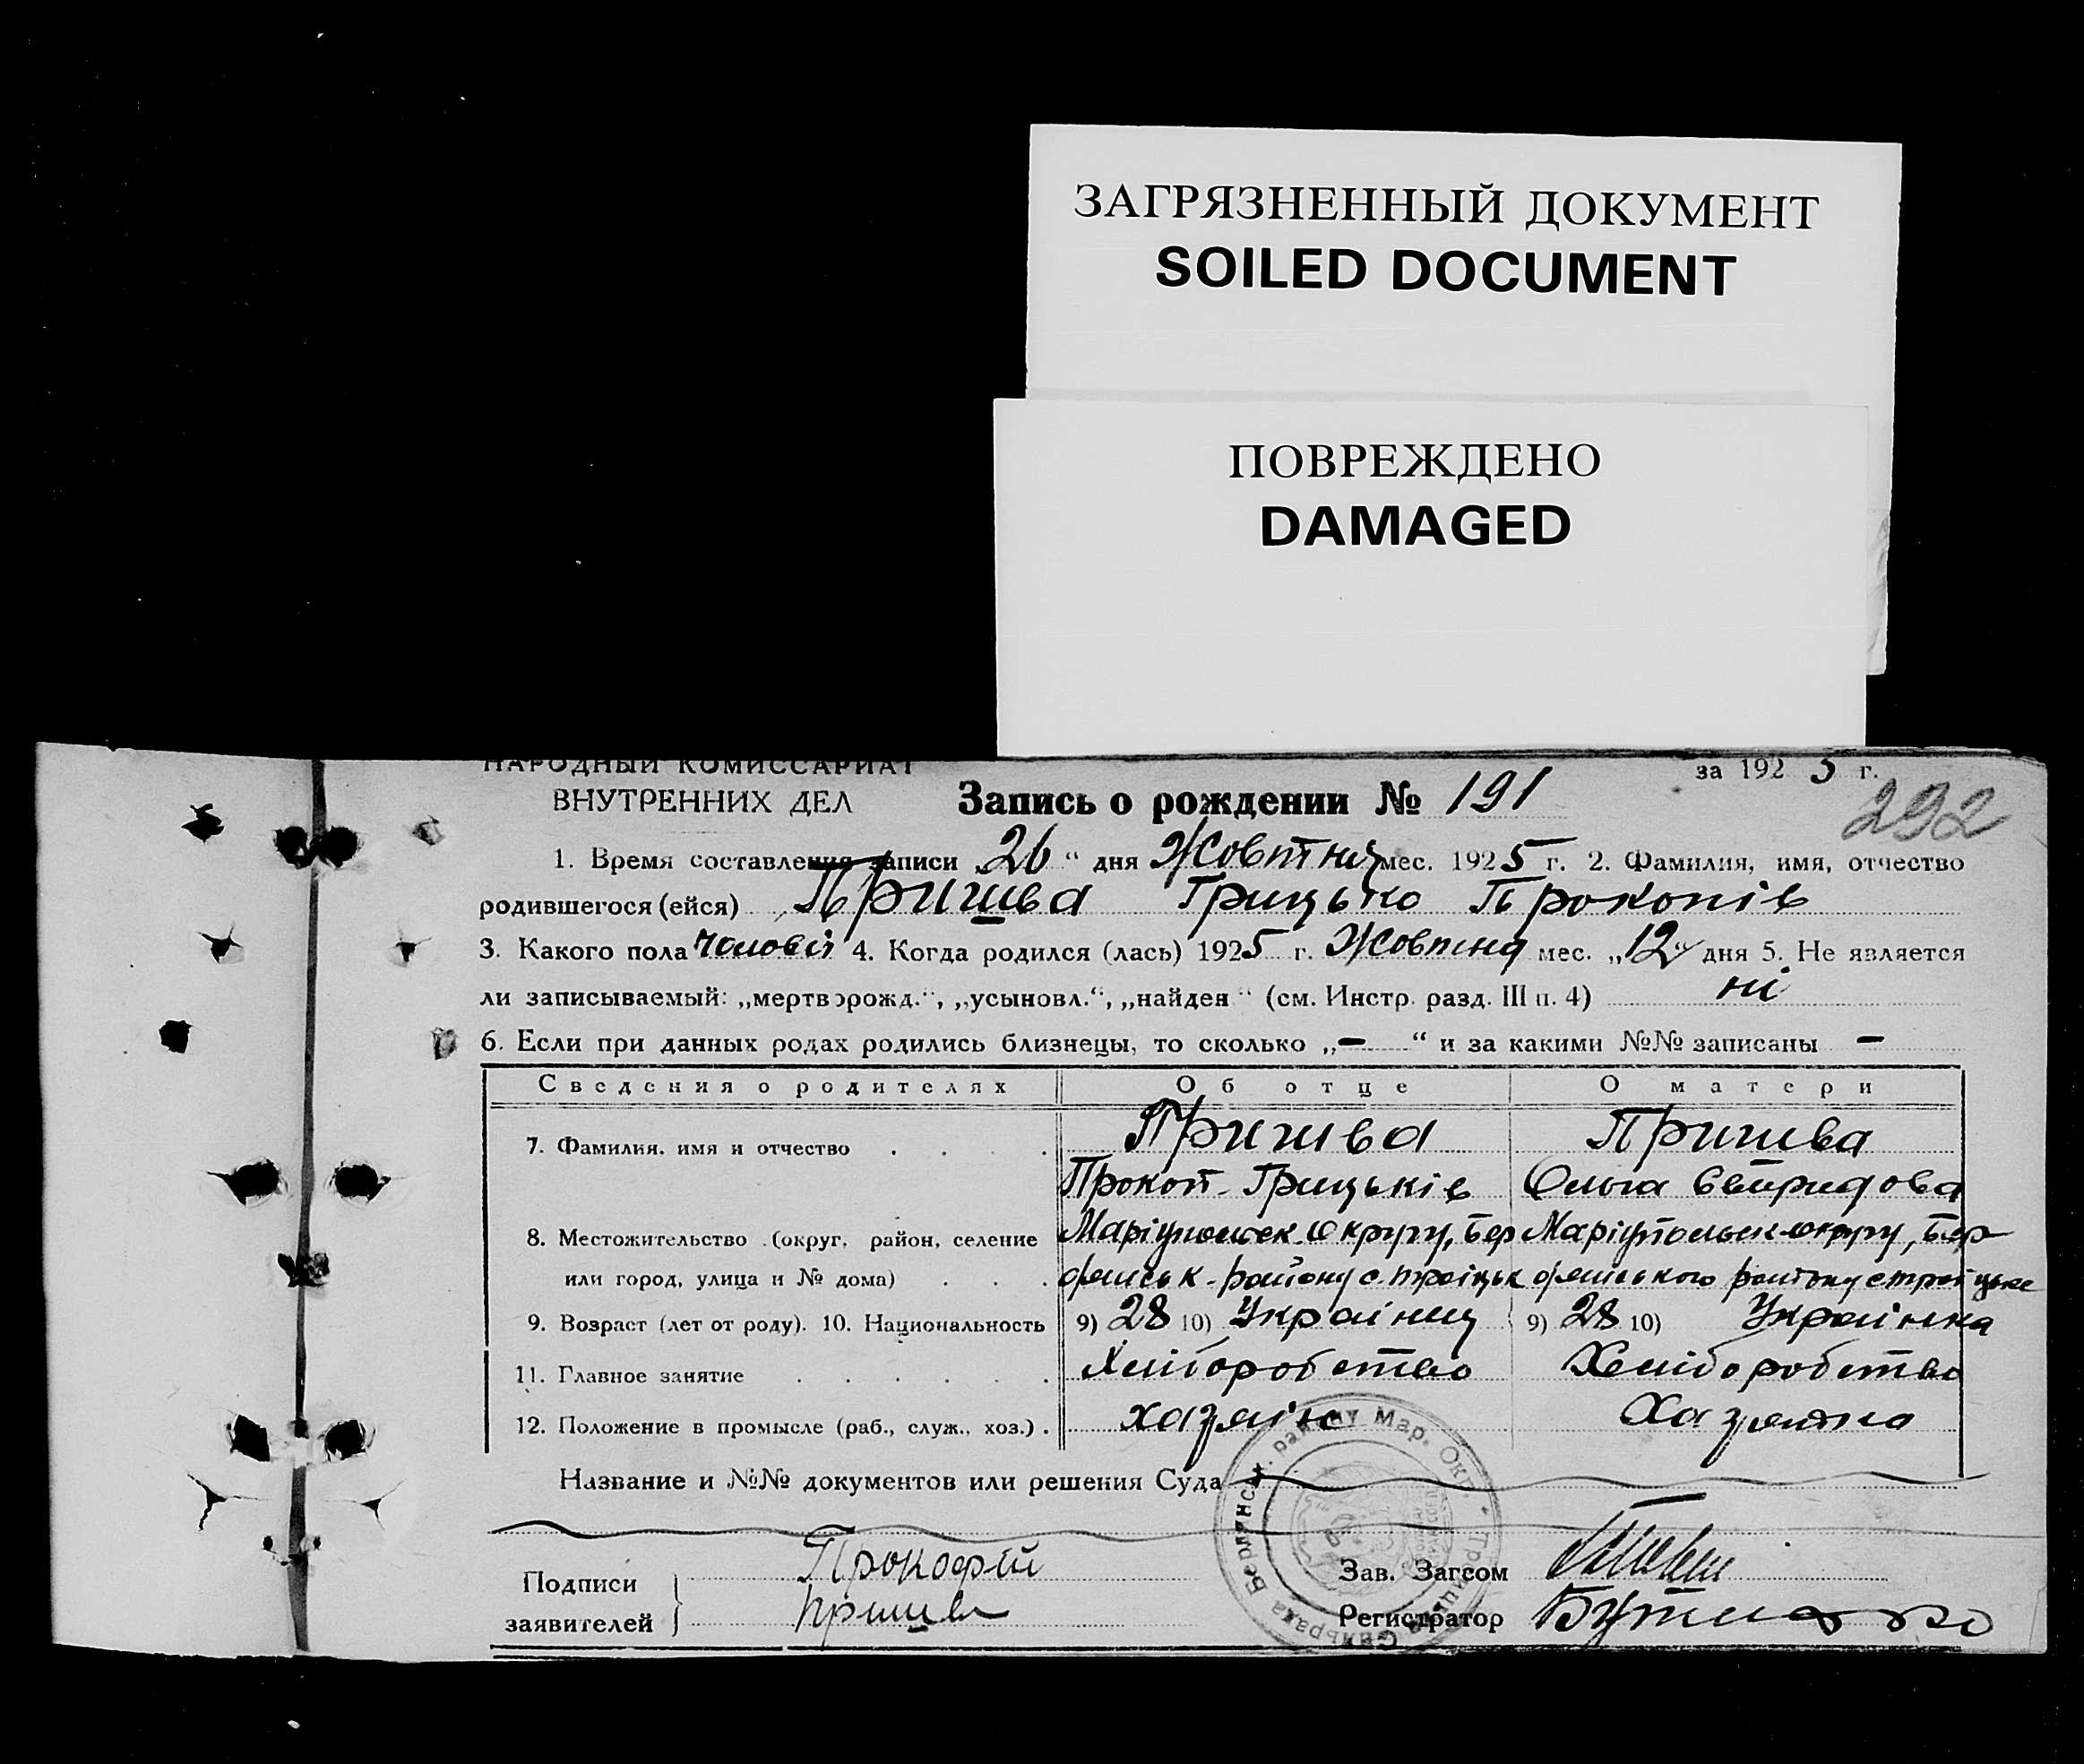 ЗАГРЯЗНЕННЫЙ ДОКУМЕНТ
SOILED DOCUMENT
ПОВРЕЖДЕНО
DAMAGED
НАРОДНЫЙ КОМИССАРИАТ
ВНУТРЕННИХ ДЕЛ
за 1925 г.
Запись о рождении № 191
292
1. Время составления записи 26 " дня Жовтня мес. 1925 г. 2. Фамилия, имя, отчество
родившегося (ейся) Пришва Грицько Прокопів
3. Какого пола чоловічї 4. Когда родился (лась) 1925 г. Жовтня мес. „12" дня 5. Не является
ли записываемый: „мертворожд.", „усыновл.", „найден" (см. Инстр. разд. III п. 4) ні
6. Если при данных родах родились близнецы, то сколько „—" и за какими №№ записаны —
Сведения о родителях Об отце О матери
7. Фамилия, имя и отчество Пришва Пришва
Прокоп Грицьків Ольга Свиридова
8. Местожительство (округ, район, селение Маріупольск. Округу, Бер Маріупольск округу, Бер
или город, улица и № дома) дянськ. району с. Троіцьк дянського району с Троіцьке
9. Возраст (лет от роду). 10. Национальность 9) 28 10) Украінец 9) 28 10) Украінка
11. Главное занятие Хліборобство Хліборобство
12. Положение в промысле (раб., служ., хоз.) хазяін Хазяйка
Название и №№ документов или решения Суда
Подписи заявителей Прокофій
Пришва
Зав. Загсом
Регистратор